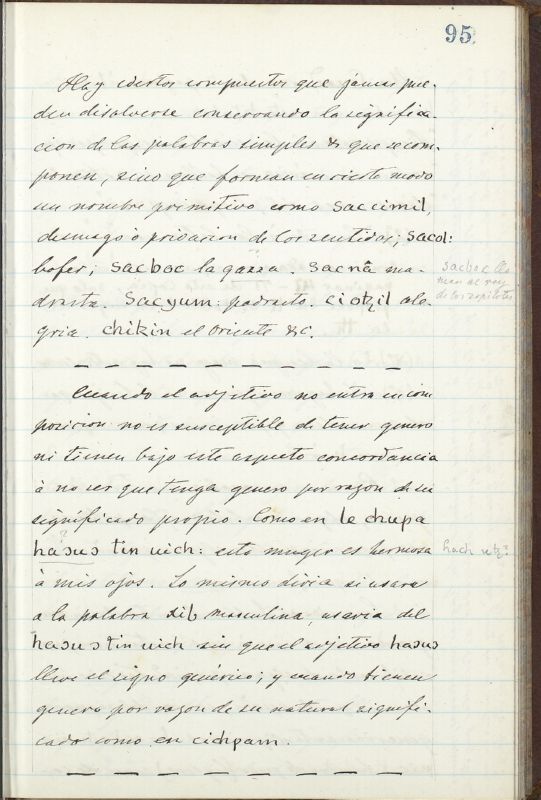 95
Hay ciertos compuestos que jamas pue-
den disolverse conservando la significa-
cion de las palabras simples de que se com-
ponen, sino que forman en cierto modo
un nombre primitivo como saccimil,
desmayo ó privacion de los sentidos; sacol:
bofer; sacboc la garza. sacnā ma-
drasta. sacyum: padrasto. ciotzil ale-
gria. chikin el Oriente &c.
sacboc lla
man al rey
de los zopilotes
Cuando el adjetivo no entra en com
posicion no es susceptible de tener genero
ni tienen bajo este aspecto concordancia
á no ser que tenga genero por razon de su
significado propio. Como en le chupa
?
haɔuɔ tin uich: esta muger es hermosa
hach utz?
á mis ojos. Lo mismo diria si usara
a la palabra xib masculina, usaria del
haɔuɔ tin uich sin que el adjetivo haɔuɔ
lleve el signo genérico; y cuando tienen
genero por razon de su natural signifi-
cado como en cichpam.